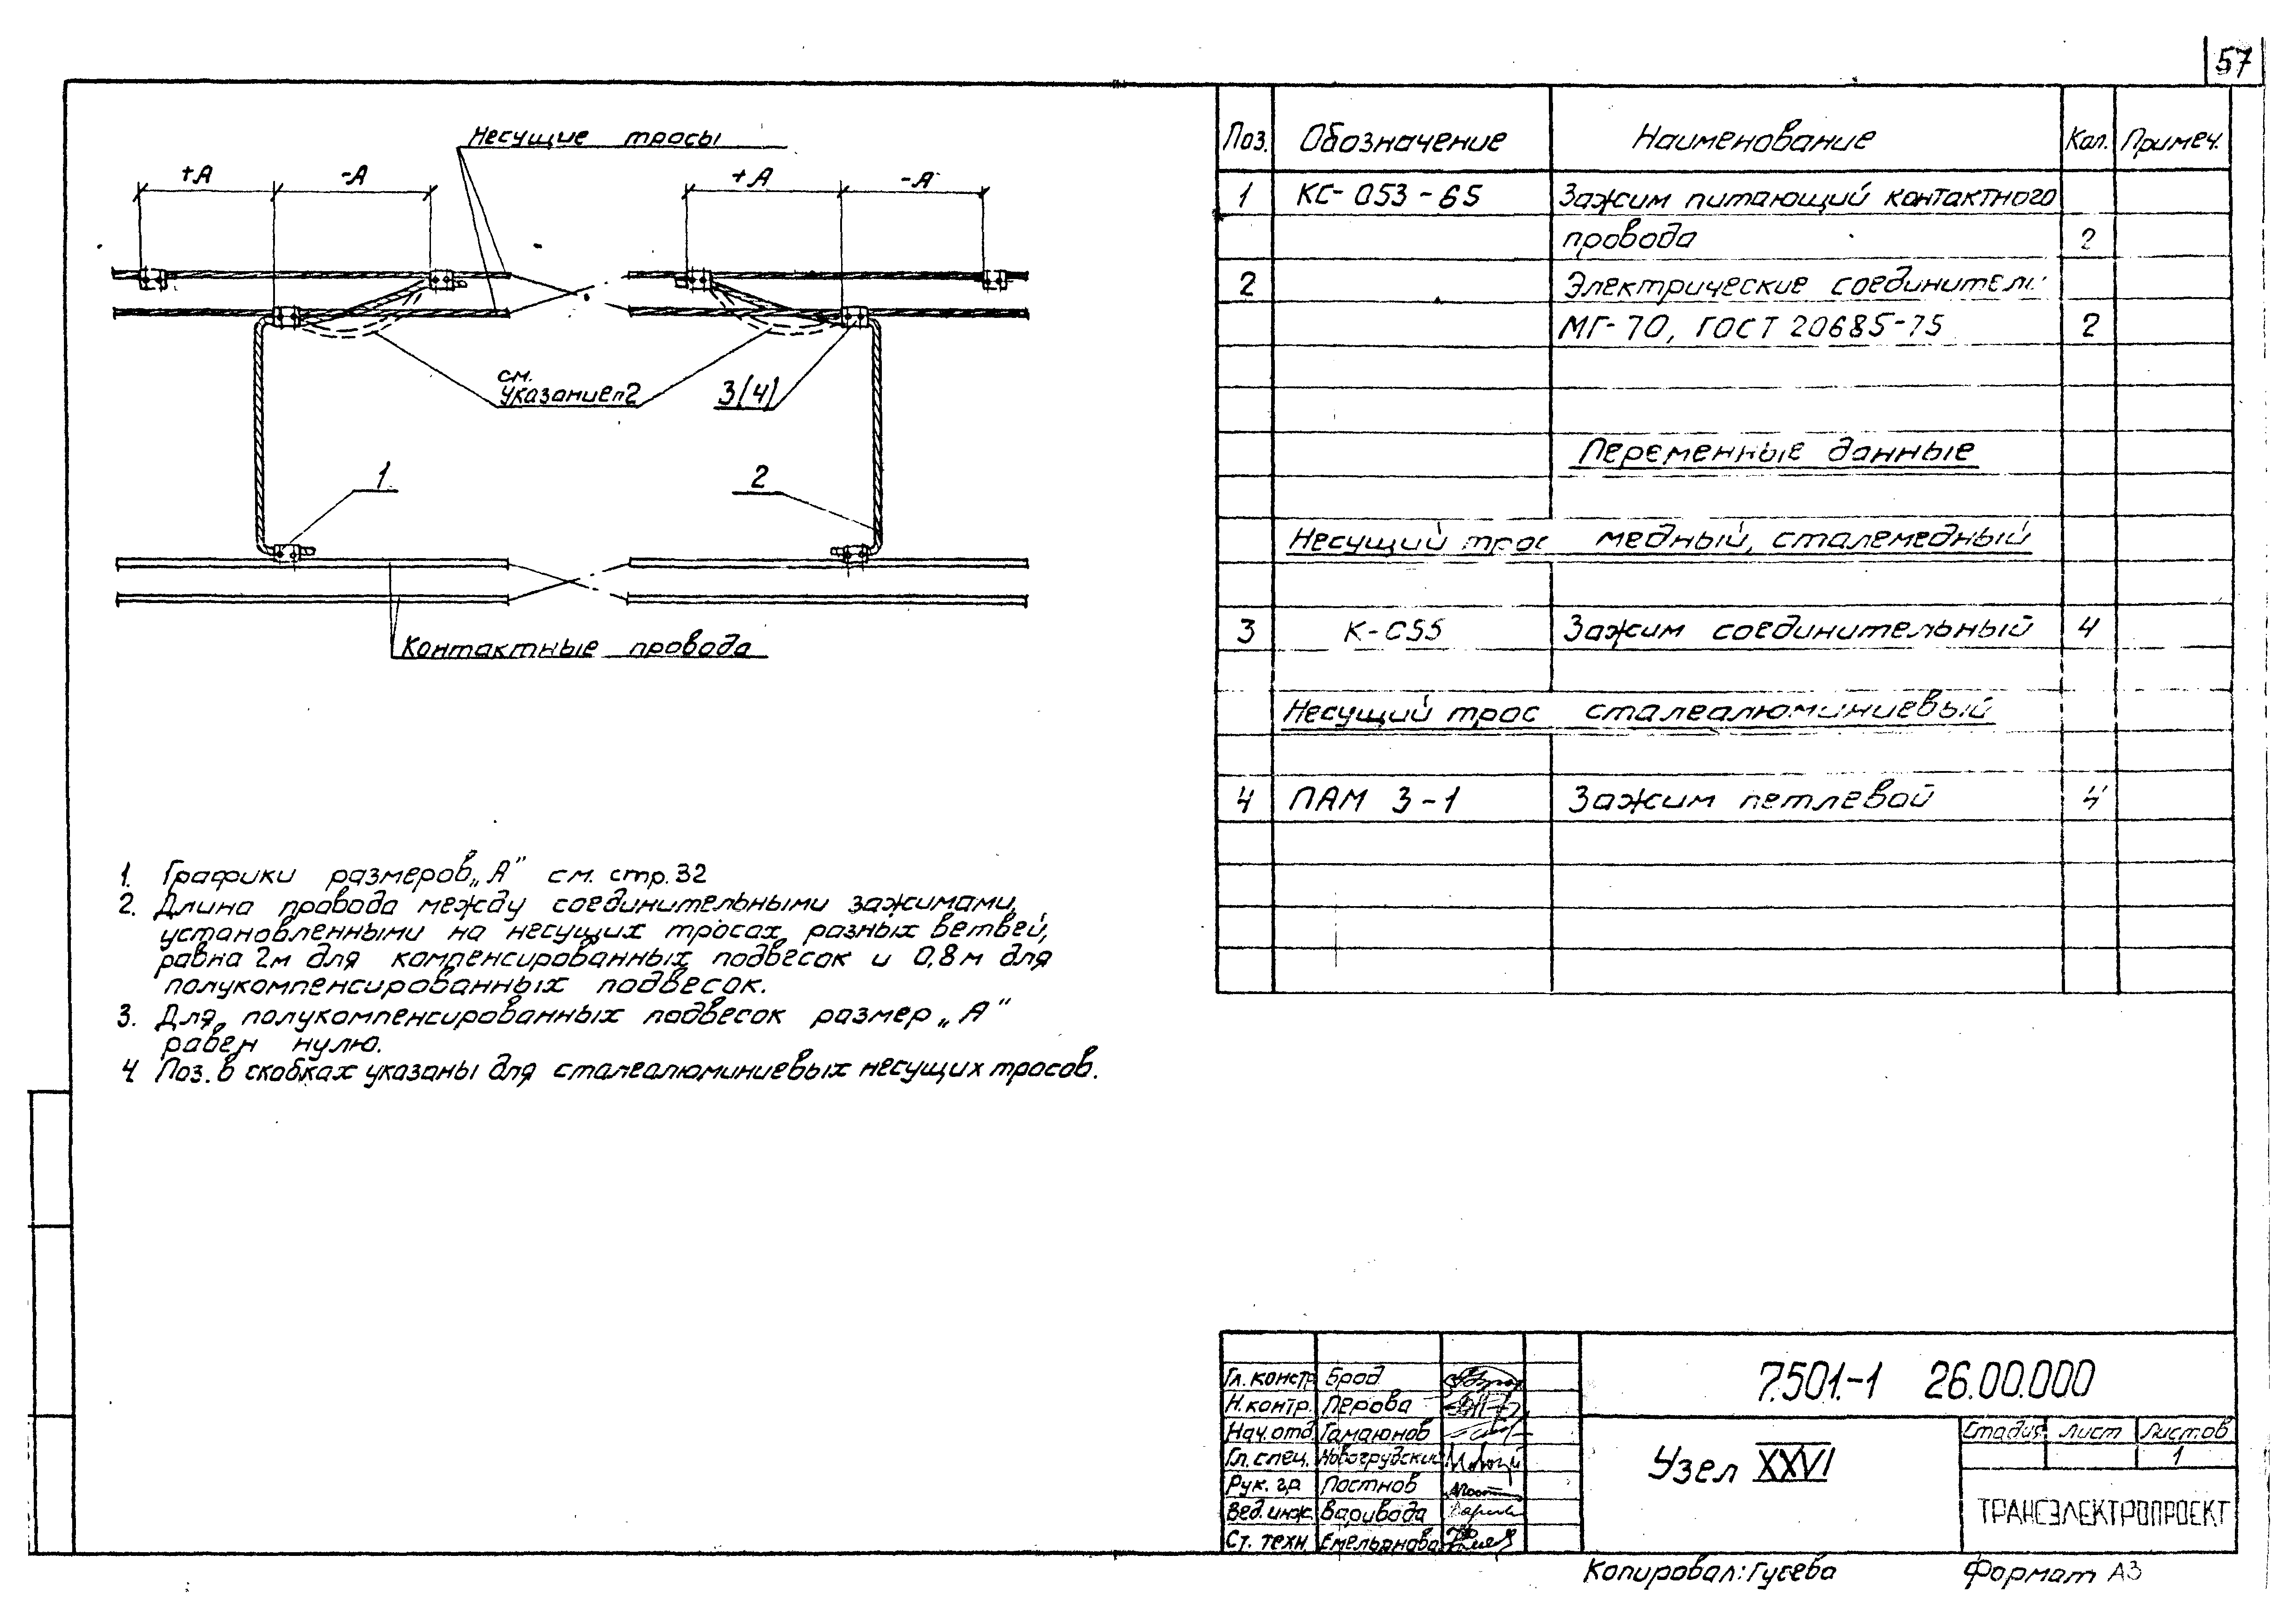 57
Несущие тросы
+А -А +А -А
см.
указание п2
3(4)
1
2
Контактные провода
1. Графики размеров „А" см. стр. 32
2. Длина провода между соединительными зажимами,
установленными на несущих тросах разных ветвей,
равна 2м для компенсированных подвесок и 0,8м для
полукомпенсированных подвесок.
3. Для полукомпенсированных подвесок размер „А"
равен нулю.
4 Поз. в скобках указаны для сталеалюминиевых несущих тросов.
Поз. Обозначение Наименование Кол. Примеч.
1 КС-053-65 Зажим питающий контактного
провода 2
2 Электрические соединители
МГ-70, ГОСТ 20685-75 2
Переменные данные
Несущий трос медный, сталемедный
3 К-055 Зажим соединительный 4
Несущий трос сталеалюминиевый
4 ПАМ 3-1 Зажим петлевой 4
Гл. констр Брод
Н. контр. Перова
Нач. отд. Гамаюнов
Гл. спец. Новогрудский
Рук. гр. Постнов
Вед. инж. Варивода
Ст. техн. Емельянова
7.501.-1 26.00.000
Узел XXVI
Стадия Лист Листов
1
ТРАНСЭЛЕКТРОПРОЕКТ
Копировал: Гусева Формат А3